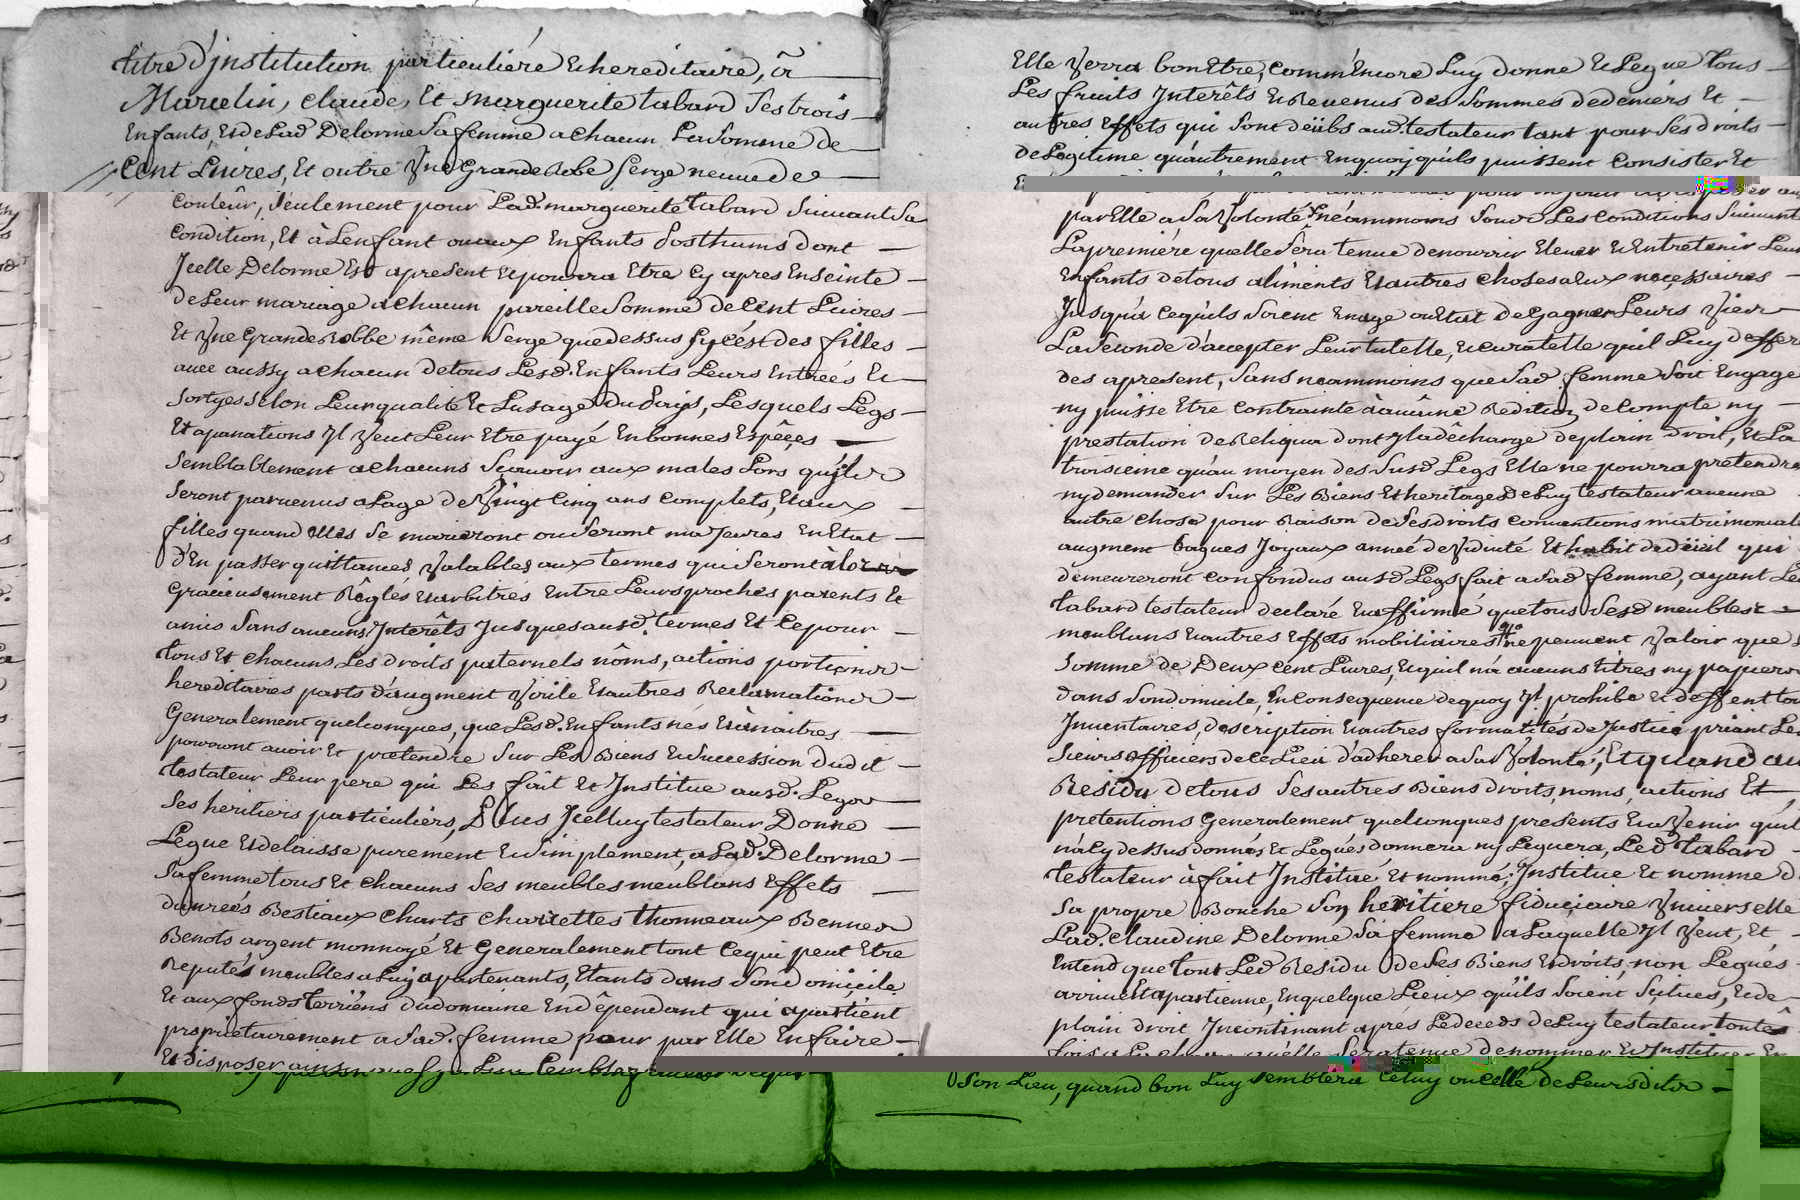 titre d'jnstitution particuliére & hereditaire, à
Marcelin, claude, et marguerite tabard ses trois
Enfants, & de Lad. Delorme sa femme a chacun La somme de
Cent Livres, Et outre Vne Grande Robe serge neuve de
couleur, seulement pour Lad. marguerite tabard suivant sa
condition, Et à Lenfant ou aux Enfants Posthums dont
Jcelle Delorme Est apresent & pourra Etre cy apres Enseinte
de Leur mariage a chacun pareille somme de Cent Livres
Et Vne Grande Robbe même serge que dessus sy cést des filles
avec aussy a chacun de tous Lesd. Enfants Leurs Entreés Et
sortyes selon Leur qualité Et Lusage du Pays, Lesquels Legs
Et apanations Jl Veut Leur Etre payé En bonnes Espêçes
semblablement a chacuns sçavoir aux males Lors qu'jls
seront parvenus a Lage de Vingt Cinq ans complets, & aux
filles quand Elles se marieront ou seront majeures En Etat
d'En passer quittances Valables aux termes qui seront àlors
Gracieusement Règlés & arbitrés Entre Leurs proches parents Et
amis sans aucuns Jnterêts Jusques ausd. termes Et Ce pour
tous Et chacuns Les droits paternels nôms, actions portions
hereditaires parts d'augment Virile & autres Reclamations
Generalement quelconques, que Lesd. Enfants nés & à naitres
pourront avoir Et pretendre sur Les Biens & succession dudit
testateur Leur pere qui Les fait Et Jnstitue ausd. Legs
ses heritiers particuliers, Plus Jcelluy testateur Donne
Legue & delaisse purement & simplement, a Lad. Delorme
sa femme tous Et chacuns ses meubles meublans Effets
danreés Bestiaux charts charrettes thonneaux Bennes
Benots argent monnoyé Et Generalement tout Ce qui peut Etre
Reputés meubles a Luy apartenants, Etants dans son domicile
Et aux fonds terriens du domaine En dêpendant qui apartient
proprietairement a sad. femme pour par Elle En faire
Et disposer ainsy
Elle Verra bon Etre, comm'Encore Luy donne & Legue tous
Les fruits Jnterêts & Revenus des sommes de deniers Et
autres Effets qui sont dëübs aud. testateur tant pour ses droits
de Legitime qu'autrement En quoy qu'ils puissent Consister Et
par Elle a sa Volonté neammoins sous Les Conditions suivant
La premiére quelle sera tenue de nourrir Elever & Entretenir Leur
Enfants de tous aliments & autres choses a Eux neçessaires
Jusqu'a Cequ'ils soient En age ou Etat de Gagner Leurs Vies
La seconde d'accepter Leur tutelle, & curatelle qu'il Luy deffer
des apresent, sans neammoins que sad. femme soit Engage
ny puisse Etre Contrainte à aucune Redition de Compte ny
prestation de Reliqua dont Jl La dêcharge de plain droit, Et La
troisieme qu'au moyen des susd. Legs Elle ne pourra pretendre
ny demander sur Les Biens & heritages de Luy testateur aucune
autre chose pour Raison de ses droits conventions matrimoniale
augment bagues Joyaux anneé de Viduité Et habit de dëüil qui
demeureront confondus ausd. Legs fait a sad. femme, ayant Led.
tabard testateur declaré & affirmé que tous sesd. meubles
meublans & autres Effets mobiliaires ne peuvent Valoir que
somme de Deux cent Livres, & quil n'a aucuns titres ny papiers
dans son domicile, En Consequence de quoy Jl prohibe & deffent tou
Jnventaires, description & autres formalités de Justice priant Les
sieurs officiers de Ce Lieu d'adherer a sa Volonté, Et quand au
Residu de tous ses autres Biens droits, noms, actions Et
pretentions Generalement quelconques presents & a Venir quil
n'a Cy dessus donnés Et Legués donnera ny Leguera, Led. tabard
testateur à fait Jnstitué Et nommé, Jnstitue Et nomme d
sa propre Bouche son heritiere fiduciaire Vniverselle
Lad. Claudine Delorme sa femme a Laquelle Jl Veut, Et
Entend que tout Led. Residu de ses Biens & droits, non Legués
arrive Et apartienne, En quelque Lieux qu'ils soient situés, & de
plain droit Jncontinant aprés Le deceds de Luy testateur toutês
fois a La charge qu'elle sera tenue de nommer & Jnstituer En
son Lieu, quand bon Luy semblera Celuy ou Celle de Leurs dits